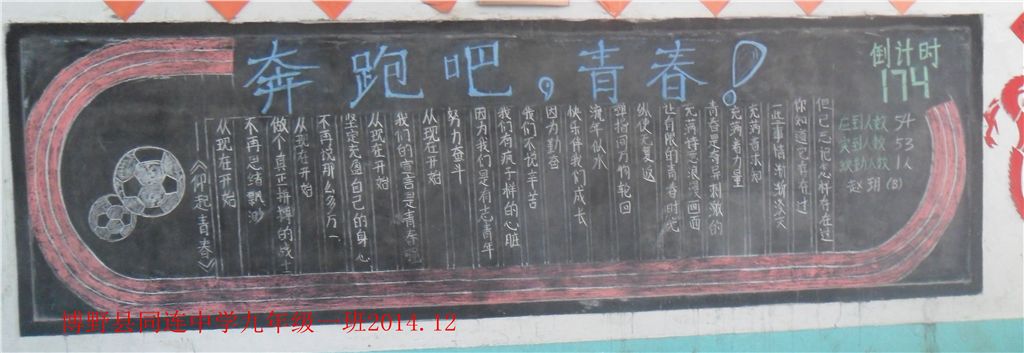 奔跑吧，青春！
倒计时
174
应到人数 54
实到人数 53
缺勤人数 1人
赵玥(B)
但已忘记怎样存在过
你知道它存在过
一些事情渐渐淡灭
充满着未知
充满着力量
青春是奇异刺激的
充满诗意浪漫画面
让有限的青春时光
纵使无复返
弹指间万物轮回
流年似水
快乐伴我们成长
因为勤奋
我们不说辛苦
我们有疯子样的心脏
因为我们是有志青年
努力奋斗
从现在开始
我们的宣言是青春
从现在开始
坚定充盈自己的身心
不再说那么多万一
从现在开始
做个真正拼搏的战士
不再思绪飘浮
从现在开始
《仰起青春》
博野县同连中学九年级一班2014.12